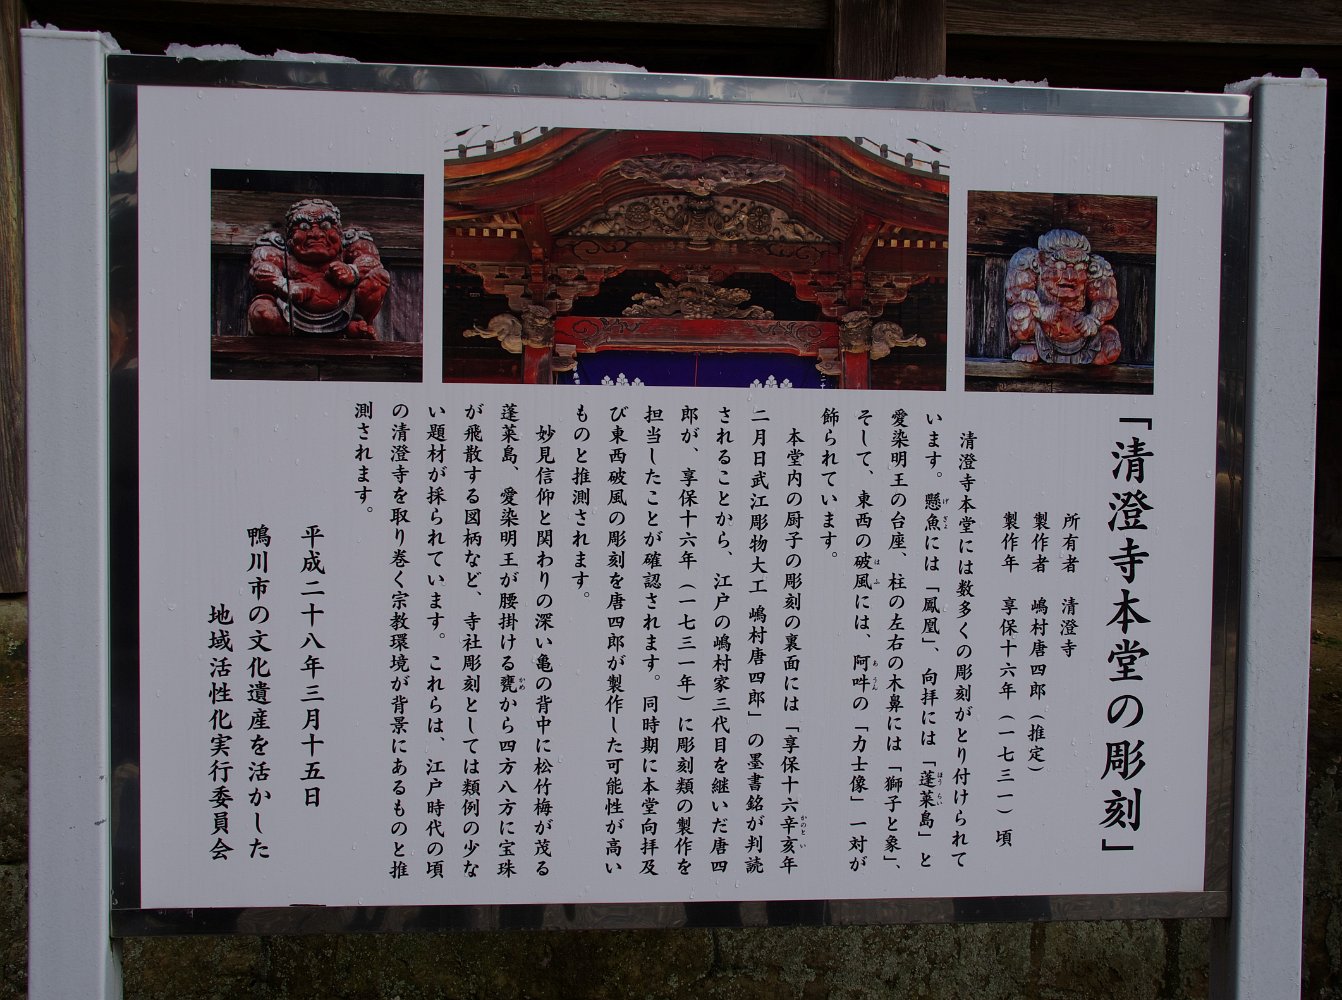 「清澄寺本堂の彫刻」
所有者　清澄寺
製作者　嶋村唐四郎（推定）
製作年　享保十六年（一七三一）頃
清澄寺本堂には数多くの彫刻がとり付けられて
います。懸魚には「鳳凰」、向拝には「蓬莱島」と
愛染明王の台座、柱の左右の木鼻には「獅子と象」、
そして、東西の破風には、阿吽の「力士像」一対が
飾られています。
本堂内の厨子の彫刻の裏面には「享保十六辛亥年
二月日武江彫物大工 嶋村唐四郎」の墨書銘が判読
されることから、江戸の嶋村家三代目を継いだ唐四
郎が、享保十六年（一七三一年）に彫刻類の製作を
担当したことが確認されます。同時期に本堂向拝及
び東西破風の彫刻を唐四郎が製作した可能性が高い
ものと推測されます。
妙見信仰と関わりの深い亀の背中に松竹梅が茂る
蓬莱島、愛染明王が腰掛ける甕から四方八方に宝珠
が飛散する図柄など、寺社彫刻としては類例の少な
い題材が採られています。これらは、江戸時代の頃
の清澄寺を取り巻く宗教環境が背景にあるものと推
測されます。
平成二十八年三月十五日
鴨川市の文化遺産を活かした
地域活性化実行委員会